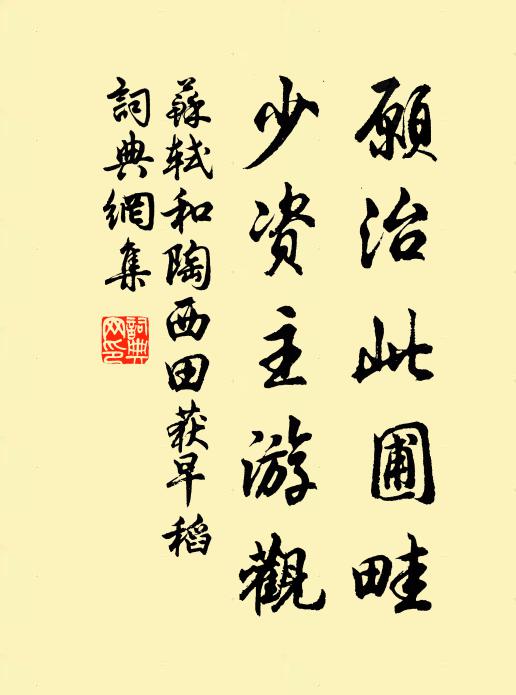 願治此圃畦
少资主游觀
蘇軾和陶西田荻早稻
詞典網集
詞典
网印